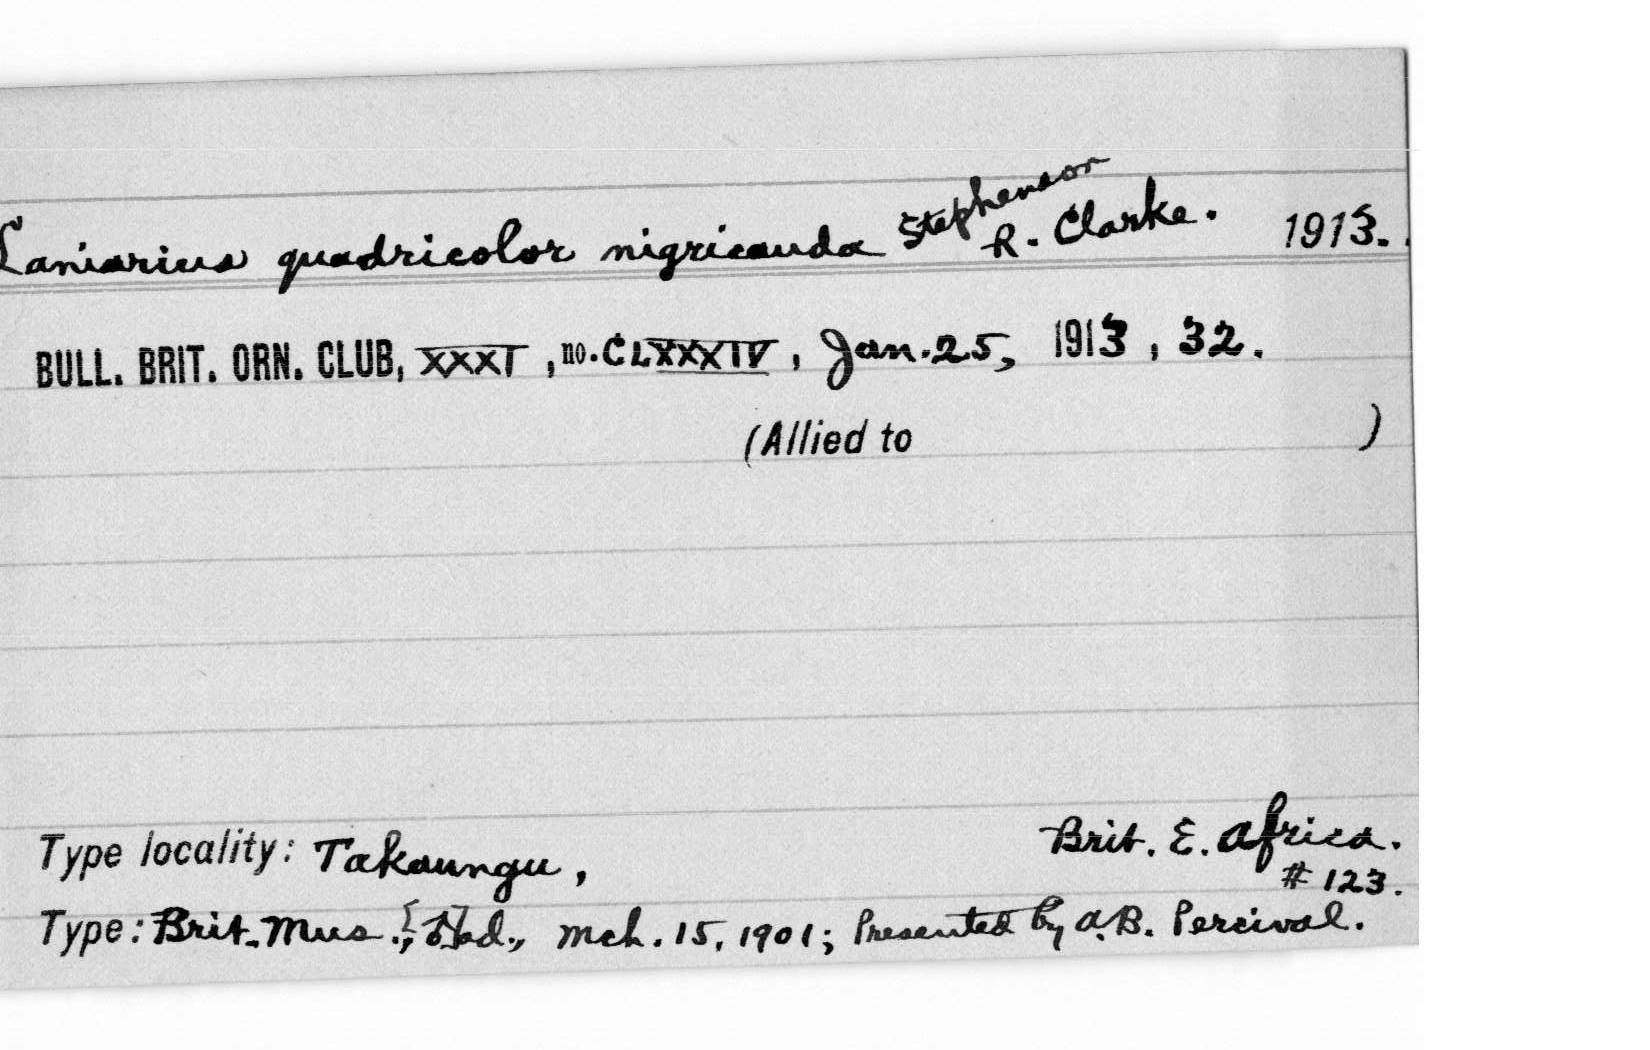 Laniarius quadricolor nigricauda Stephenson R. Clarke. 1913.
BULL. BRIT. ORN. CLUB, XXXI, no. CLXXXIV, Jan. 25, 1913, 32.
(Allied to )
Type locality: Takaungu, Brit. E. Africa.
# 123.
Type: Brit. Mus.; ad., Mch. 15, 1901; Presented by A. B. Percival.